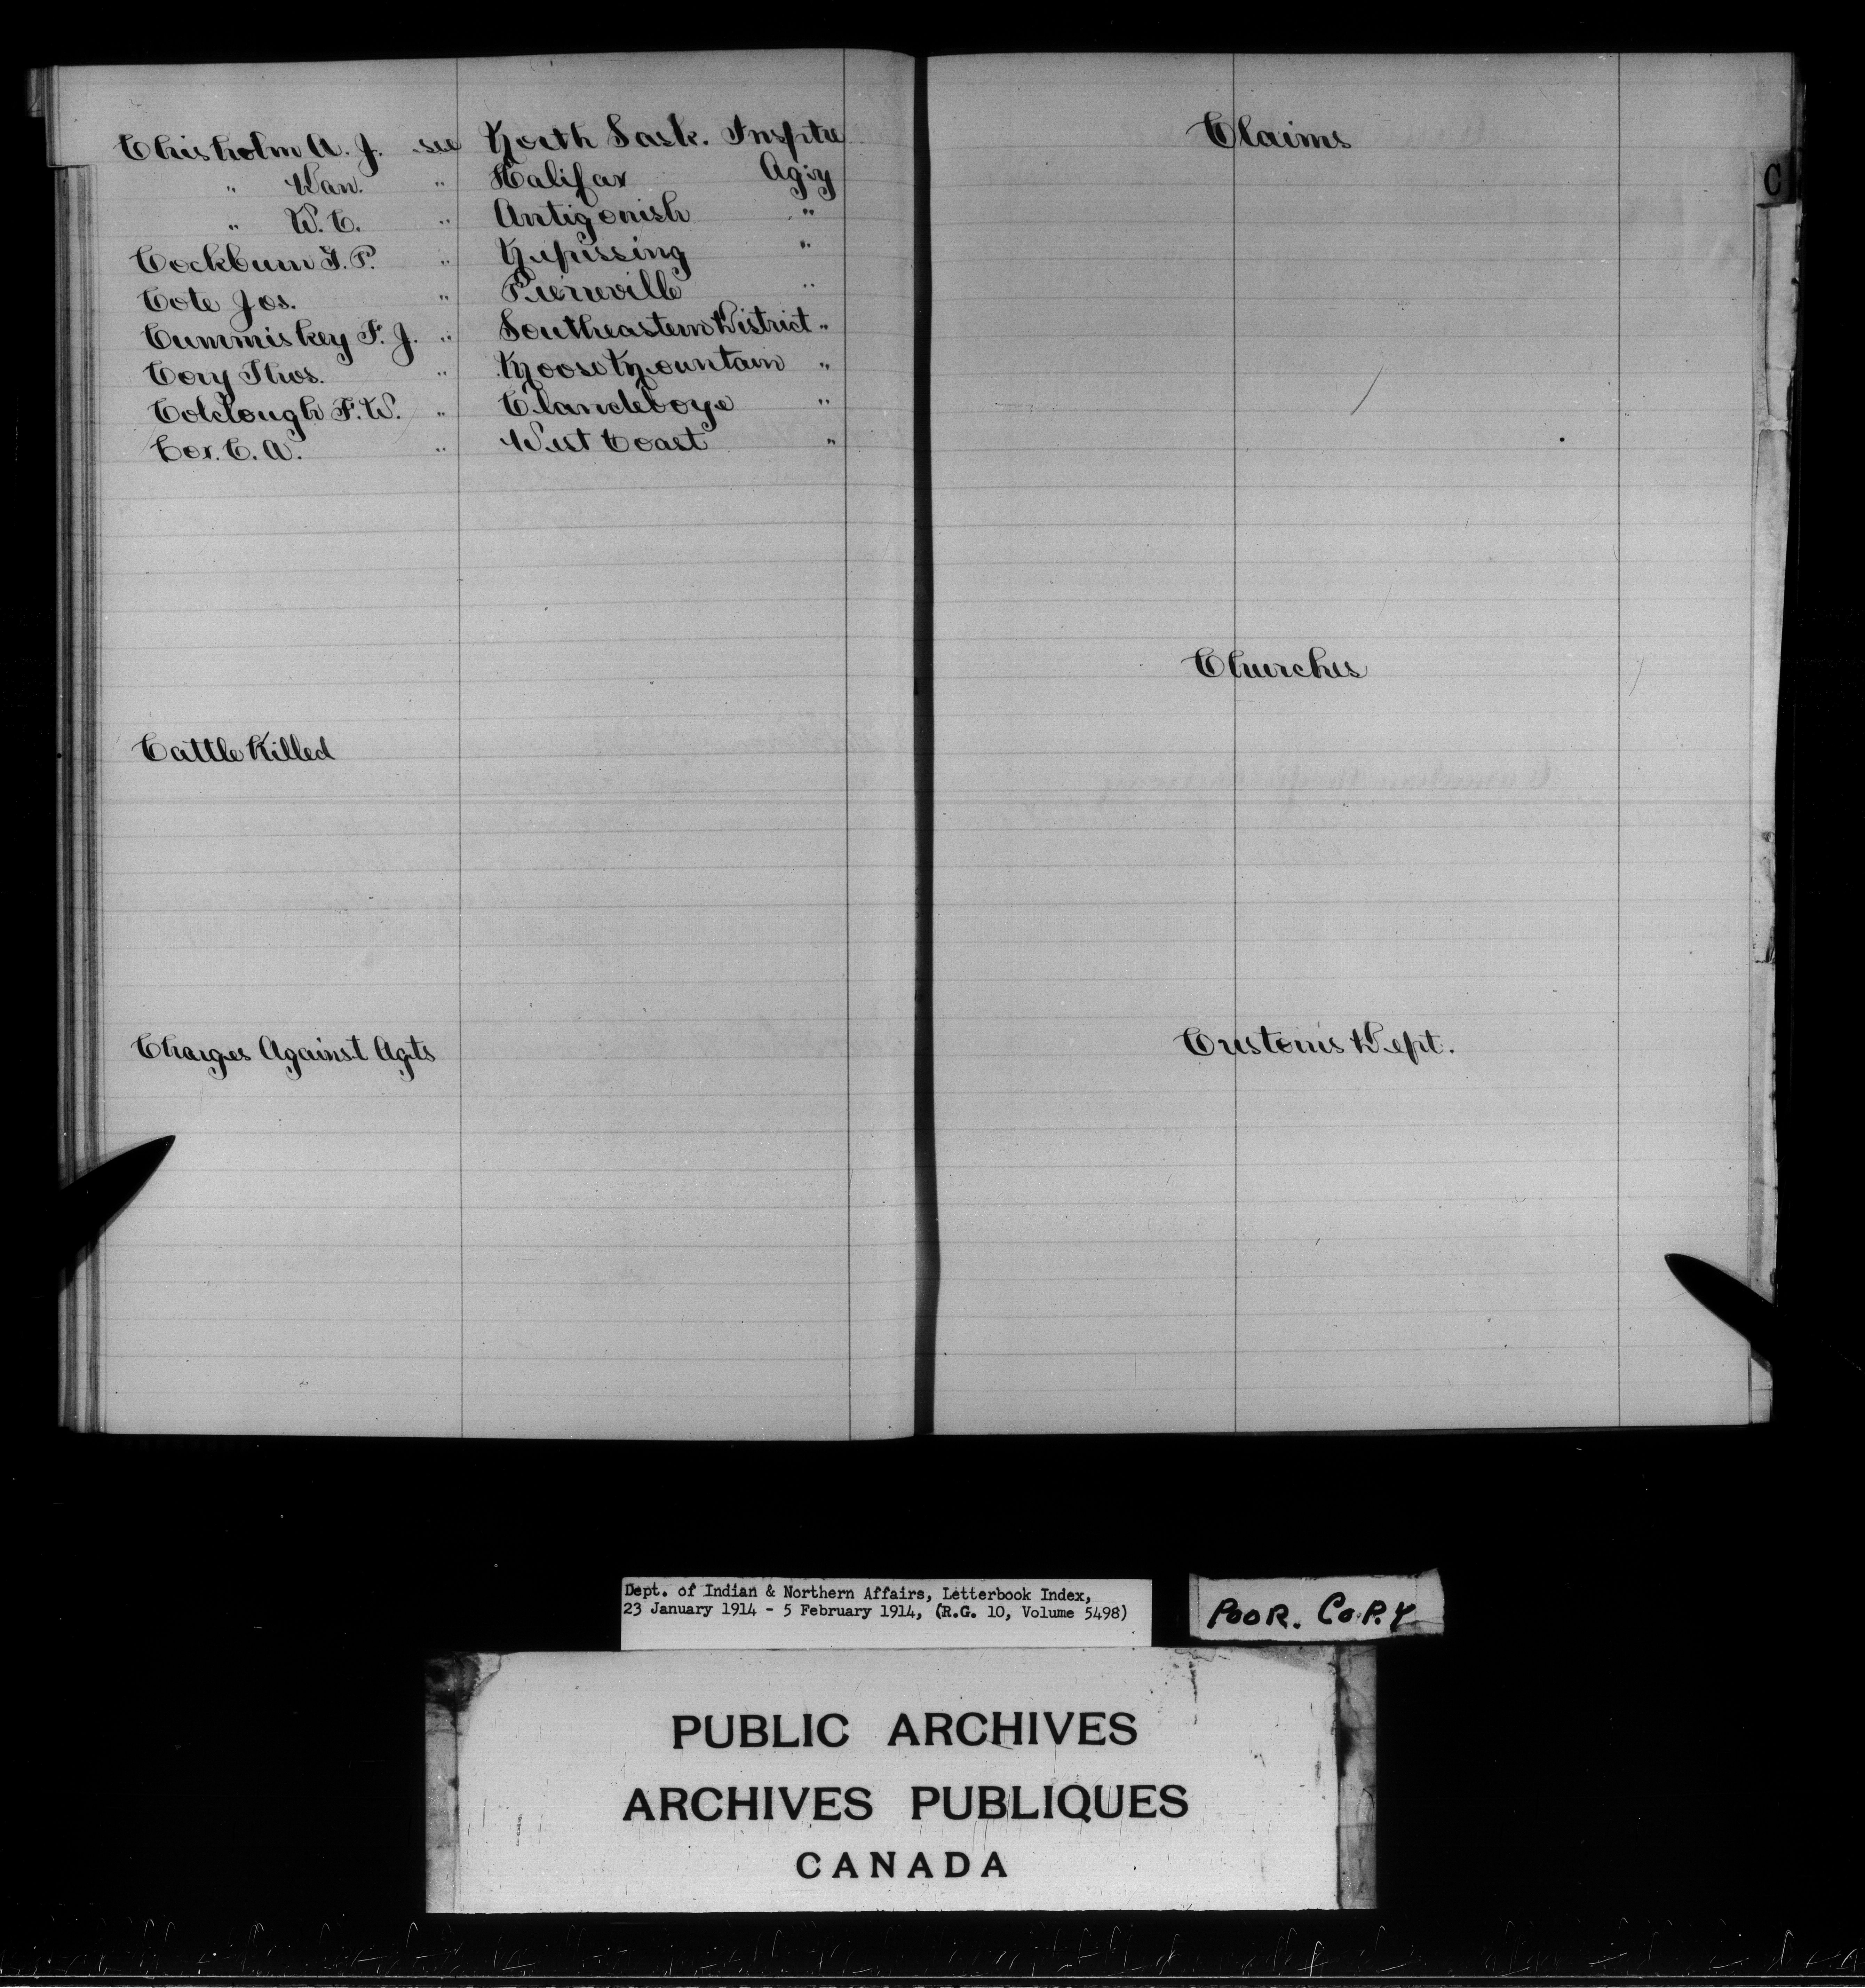 Chisholm A. J. see North Sask. Insptre
" Dan. " Halifax Ag'cy
" W. C. " Antigonish "
Cockburn G. P. " Nipissing "
Cote Jos. " Pierreville "
Cummiskey F. J. " Southeastern District "
Cory Thos. " Moose Mountain "
Colclough F. W. " Clandeboye "
Cox. C. A. " West Coast "
Cattle Killed
Charges Against Agts
Claims
C
Churches
Customs Dept.
Dept. of Indian & Northern Affairs, Letterbook Index,
23 January 1914 - 5 February 1914, (R.G. 10, Volume 5498)
POOR. COPY
PUBLIC ARCHIVES
ARCHIVES PUBLIQUES
CANADA